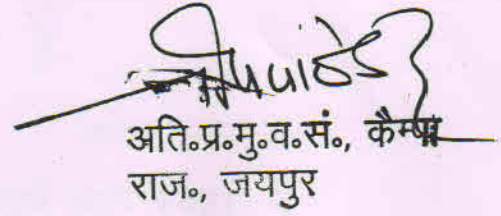 अति.प्र.मु.व.सं., कैम्पा
राज., जयपुर